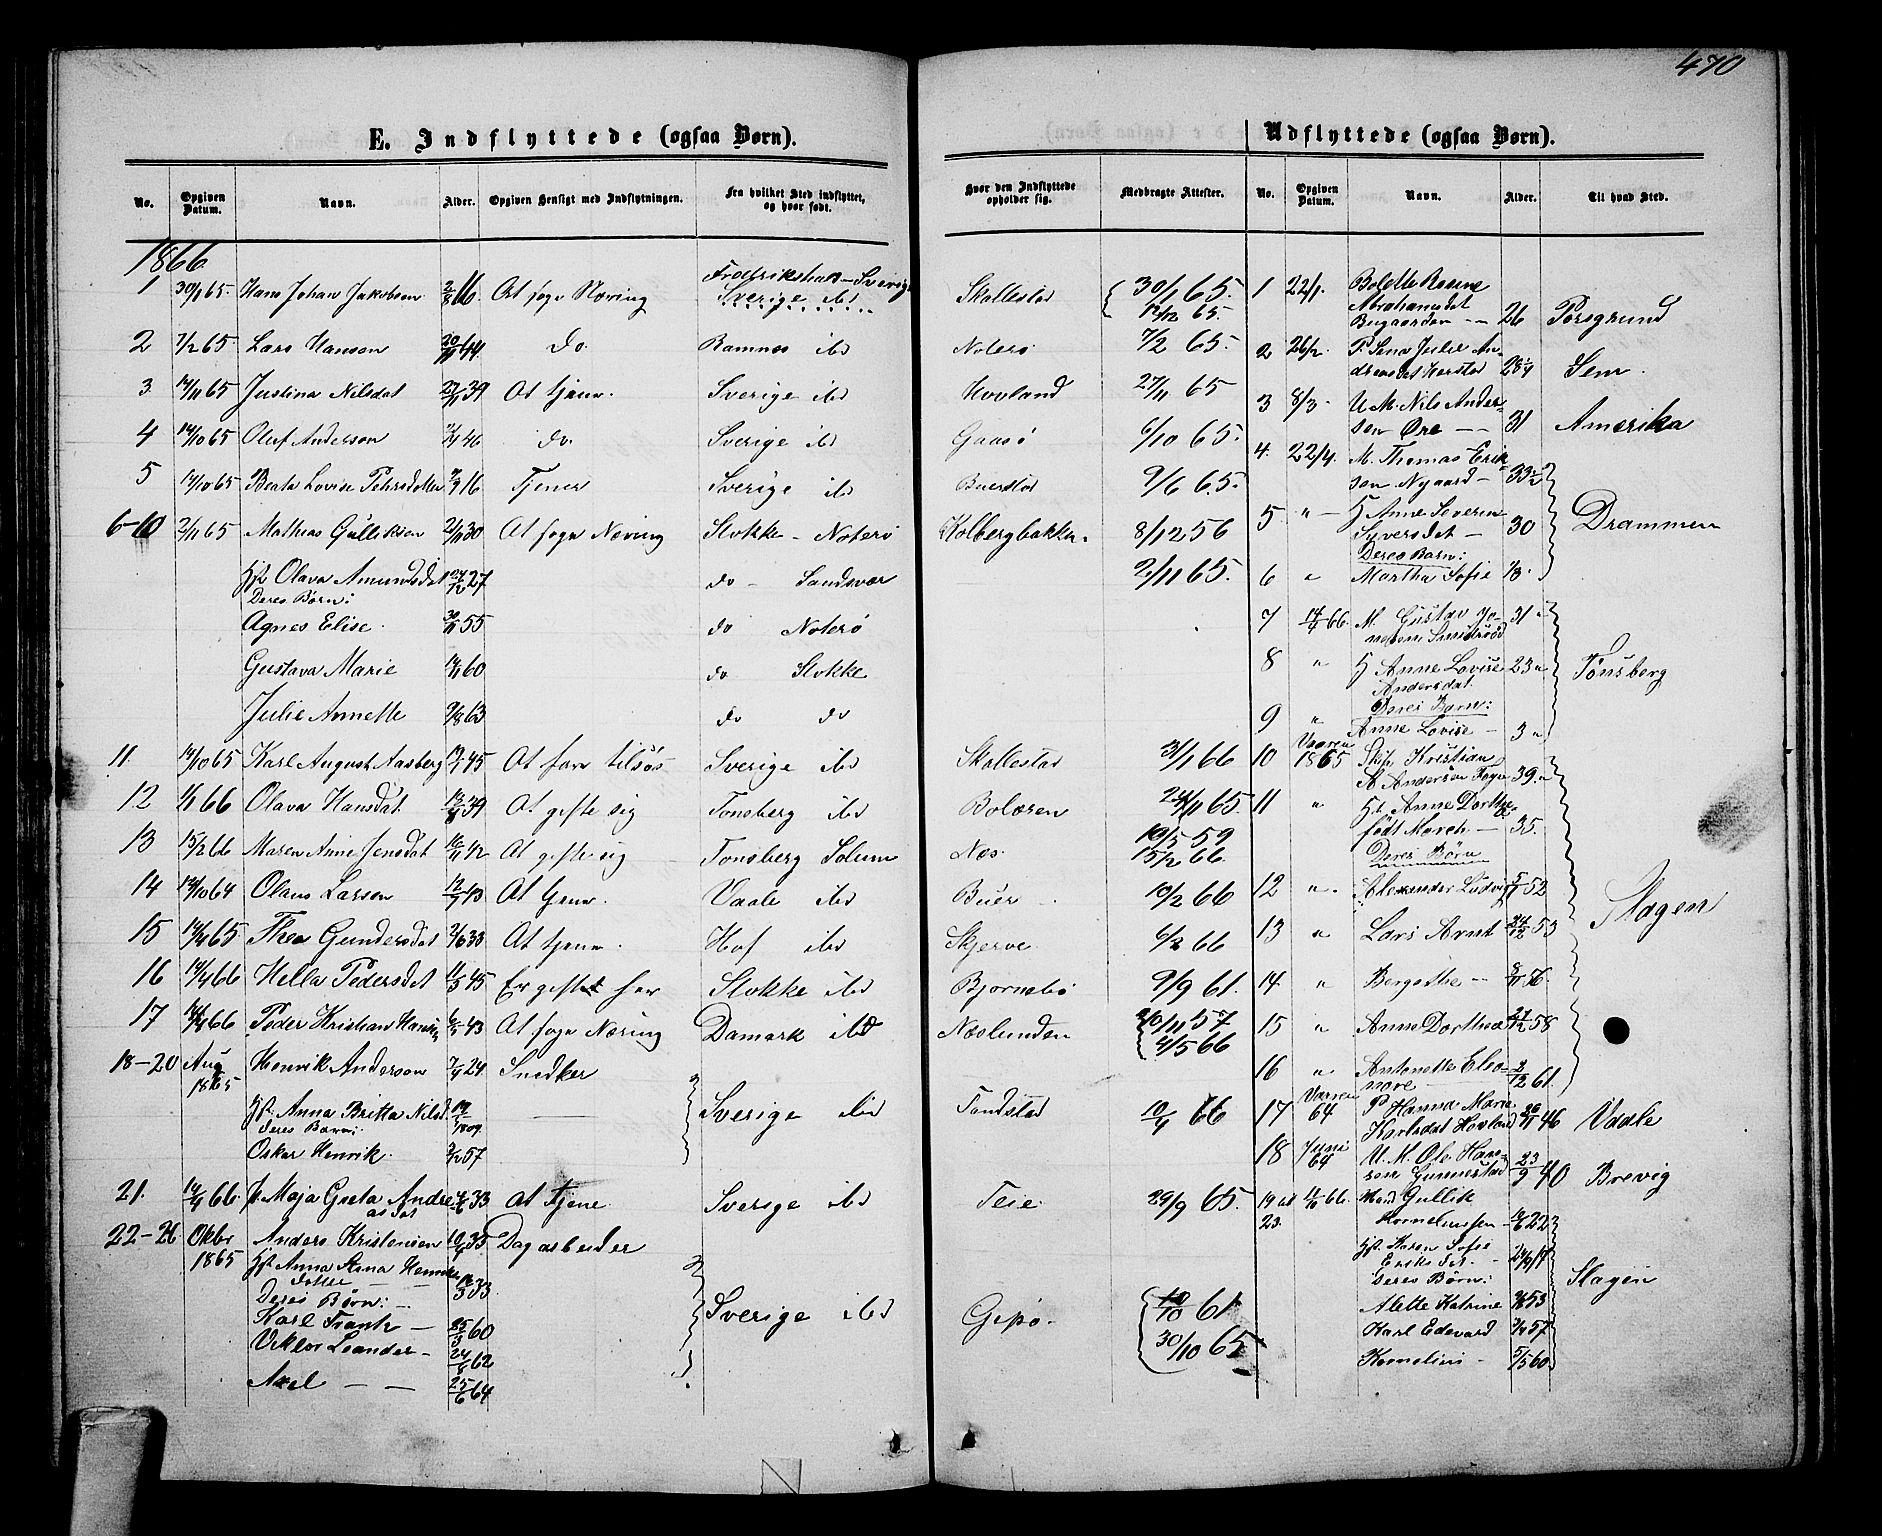 470
E. Indflyttede (ogsaa Børn).
No. Opgiven Datum. Navn. Alder. Opgiven Hensigt med Indflytningen. Fra hvilket Sted indflyttet, og hvor født. Hvor den Indflyttede opholder sig. Medbragte Attester.
1866
1 30/1 65. Hans Johan Jakobsen At søge Næring Sverige ibd Skallestad 30/1 65.
12/12 65.
2 7/2 65 Lars Hansen 20/11 44 do Ramnes ibd Noterø 7/2 65.
3 14/11 65 Justina Nilsdat 39 At tjene. Sverige ibd Hovland 27/11 65
4 14/10 65 Oluf Anderson 46 do Sverige ibd Gaasø 6/10 65.
5 14/10 65 Beata Lovise 16 Tjener Sverige ibd Buerstad 9/6 65.
6-10 2/11 65 Mathias Gulliksen 2/11 30 At søge Næring Stokke - Noterø Kolbergbakken. 8/12 56
Hst Olava Amundsdat 27 do - Sandsvær 2/11 65.
Deres Børn:
Agnes Elise. 30/11 55 do Noterø
Gustava Marie 60 do Stokke
Julie Annette 9/8 63 do do
11. 14/10 65 Karl August Aasberg 45 At fare tilsøs Sverige ibd Skallestad 31/1 66
12 1/1 66 Olava Hansdat 39 At gifte sig Tønsberg ibd Bolæren 24/11 65.
13 15/2 66 Maren Anne Jensdat 42 At gifte sig Tønsberg Solum Næs. 19/5 59
15/2 66.
14 14/10 64 Olaus Larsen 43 At tjene. Vaale ibd Buer 19/2 66
15 14/4 65 Thea Gundersdat 33 At tjene. Hof ibd Skjerve. 6/2 66
16 14/4 66 Hella Pedersdat 11/5 45 Er giftet her Stokke ibd Bjørnebo 9/9 61.
17 14/4 66 Peder Kristian Hansen 43 At søge Næring Damark ibd Næslunden 20/11 57
4/5 66
18-20 Aug 1865 Henrik Anderson 24 Snedker
Hst. Anna Britta Nilsd 1809 Sverige ibd Tandstad 10/4 66
deres Barn:
Oskar Henrik. 57
21. 66. P. Maja Greta Andreasdat 33 At tjene Sverige ibd Teie. 29/9 65.
22-26 Oktbr 1865 Anders Kristensen 35 Dagarbeider
Hst Anna Stina 33
Deres Børn:
Karl Frank - 25/3 60 Sverige ibd Gipø. 61
Viktor Leander - 24/6 62 30/10 65
Axel - - 25/6 64
Udflyttede (ogsaa Børn).
No. Opgiven Datum. Navn. Alder. Til hvad Sted.
1 22/1. Bolette Rosine
Abrahamsdat
Bugaarden - - 26 Porsgrund
2 26/2. P. Lena Julie An-
dreasdat Herstad Sem.
3 8/3. U. M. Nils Ander-
sen Øre - - 31 Amerika
4. 22/4. M. Thomas Erik-
sen Nygaard - 33½
5 " - H Anne Severine
Syversdat - 30 Drammen
Deres Barn:
6 " Martha Sofie
7 14/4 66. M. Gustav Jo-
31
8 " H Anne Lovise
Andersdat. 23 Tønsberg
Deres Barn:
9 " Anne Lovise - 3
10 Vaaren 1865 Skip. Kristian
A Andersen 39.
11 " Hst. Anne Dorthea
født March - 35.
Deres Børn
12 " Alexander Ludvig 52
13 " Lars Arnt 24/12 53 Slagen
14 " Bergethe - 56.
15 " Anne Dorthea 58
16 " Antonette Eleo-
nore - 2/12 61.
17 Vaaren 64 P Hanna Marie
Karlsdat Hovland 46 Vaale
18 Juni 64 U. M. Ole Han-
sen Gunnestad 23/9 40 Brevig
19 til 23. 66. Mand Gullik
Korneliussen - 22
Hst. Karen Sofie
Eriksdat. - 17
Deres Børn: Slagen
Alette Katrine 53
Karl Edevard 57
Kornelius - 5/5 60